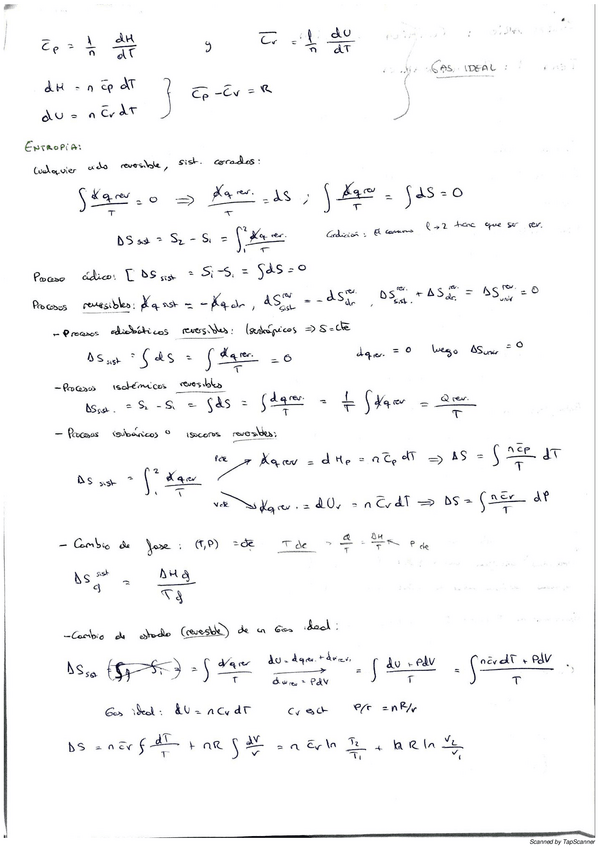 C̄p = 1/n dH/dT y C̄v = 1/n dU/dT
dH = n c̄p dT
dU = n c̄v dT } C̄p - C̄v = R
GAS IDEAL:
ENTROPÍA:
Cualquier ciclo reversible, sist. cerrados:
∫ đq rev/T = 0 ⇒ đq rev./T = dS ; ∫ đq rev/T = ∫ dS = 0
ΔS sist = S2 - S1 = ∫₁² đq rev./T Condición: El camino 1→2 tiene que ser rev.
Proceso cíclico: [ ΔS sist = Si - Si = ∫ dS = 0
Procesos reversibles: đq sist = - đq alr, dS sist rev = - dS alr rev, ΔS sist rev. + ΔS alr. rev. = ΔS univ rev = 0
- Procesos adiabáticos reversibles: Isentrópicos ⇒ S = cte
ΔS sist = ∫ dS = ∫ đq rev./T = 0 dq rev. = 0 luego ΔS univ = 0
- Procesos isotérmicos reversibles
ΔS sist. = S2 - S1 = ∫ dS = ∫ đq rev./T = 1/T ∫ đq rev = Q rev./T
- Procesos isobáricos o isocoros reversibles:
P cte đq rev = dHp = n c̄p dT ⇒ ΔS = ∫ n c̄p/T dT
ΔS sist = ∫₁² đq rev/T
V cte đq rev. = dUv = n C̄v dT ⇒ ΔS = ∫ n c̄v/T dP
- Cambio de fase: (T,P) = cte T cte = Q/T = ΔH/T P cte
ΔS sist = ΔH/T
- Cambio de estado (reversible) de un Gas ideal:
ΔS sist = ∫ đq rev/T dU = dq rev. + dw rev. dw rev = PdV = ∫ dU + PdV/T = ∫ n c̄v dT + PdV/T
Gas ideal: dU = n Cv dT Cv = ct P/T = nR/V
ΔS = n c̄v ∫ dT/T + nR ∫ dV/V = n c̄v ln T2/T1 + n R ln V2/V1
Scanned by TapScanner